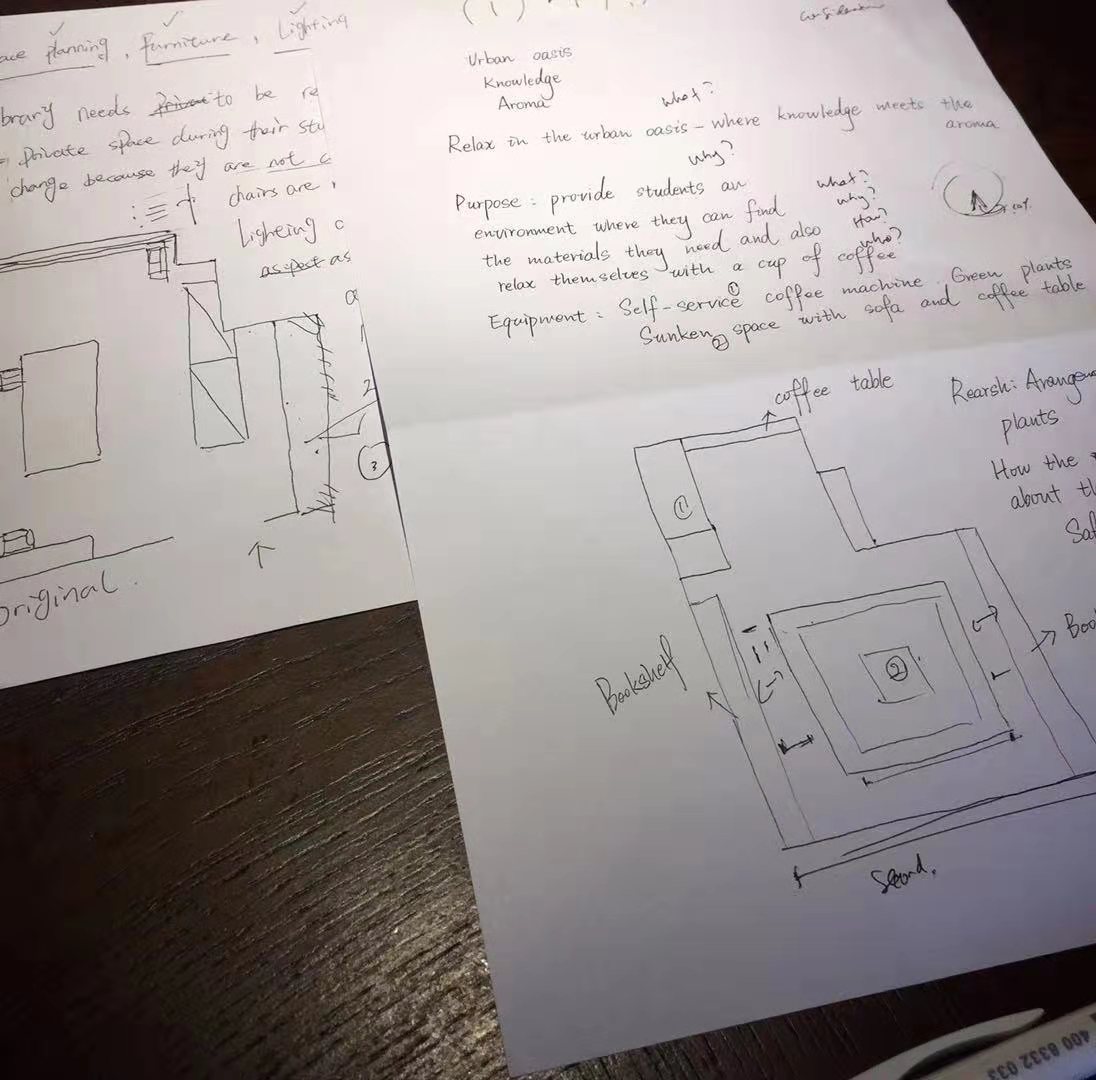 planning, furniture, Lighting
needs Private to be re
Private space during their stu
change because they are not c
chairs are
Lighting
aspect as
2
3
original.
(1)
Urban oasis
Knowledge
Aroma
what?
Relax in the urban oasis - where knowledge meets the
aroma
why?
Purpose: provide students an
environment where they can find
the materials they need and also
relax themselves with a cup of coffee
what?
why?
How?
who?
Equipment: Self-service ① coffee machine. Green plants
Sunken ② space with sofa and coffee table
coffee table
Rearsh: Arange
plants
How the
about th
①
②
Bookshelf
Boo
Second.
400 8332 033